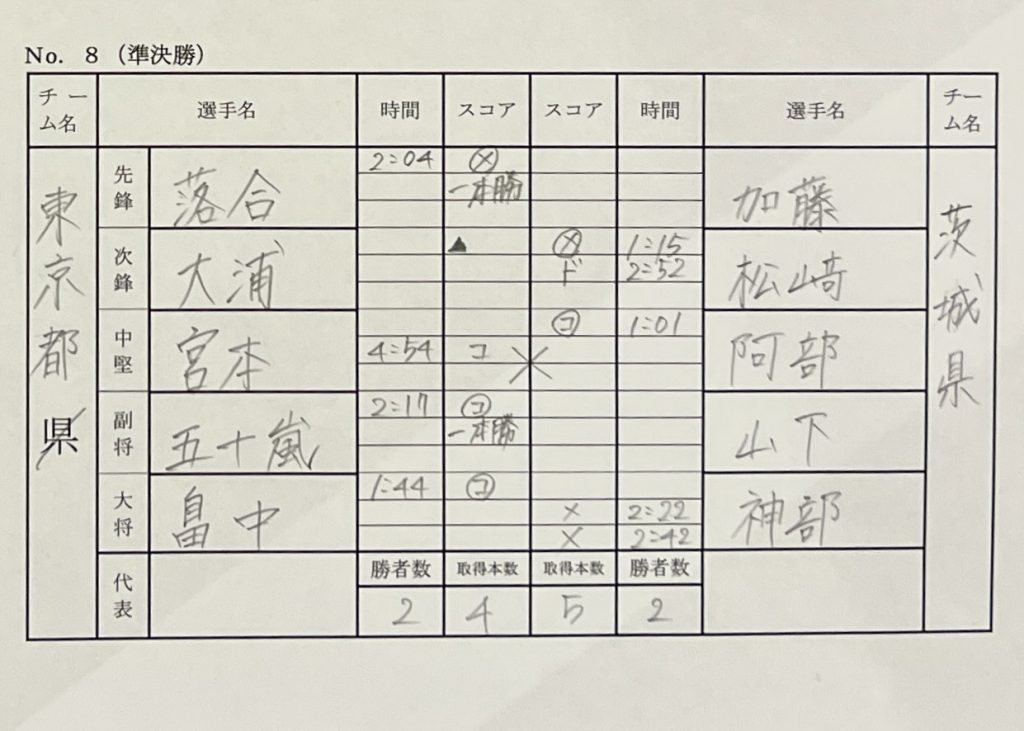 No. 8 (準決勝)
チーム名 選手名 時間 スコア スコア 時間 選手名 チーム名
東京都県 茨城県
先鋒 落合 2:04 ㋱ 加藤
一本勝
次鋒 大浦 ▲ ㋱ 1:15 松﨑
ド 2:52
中堅 宮本 ㋙ 1:01 阿部
4:54 コ ×
副将 五十嵐 2:17 ㋙ 山下
一本勝
大将 畠中 1:44 ㋙ 神部
メ 2:22
メ 2:42
代表 勝者数 取得本数 取得本数 勝者数
2 4 5 2